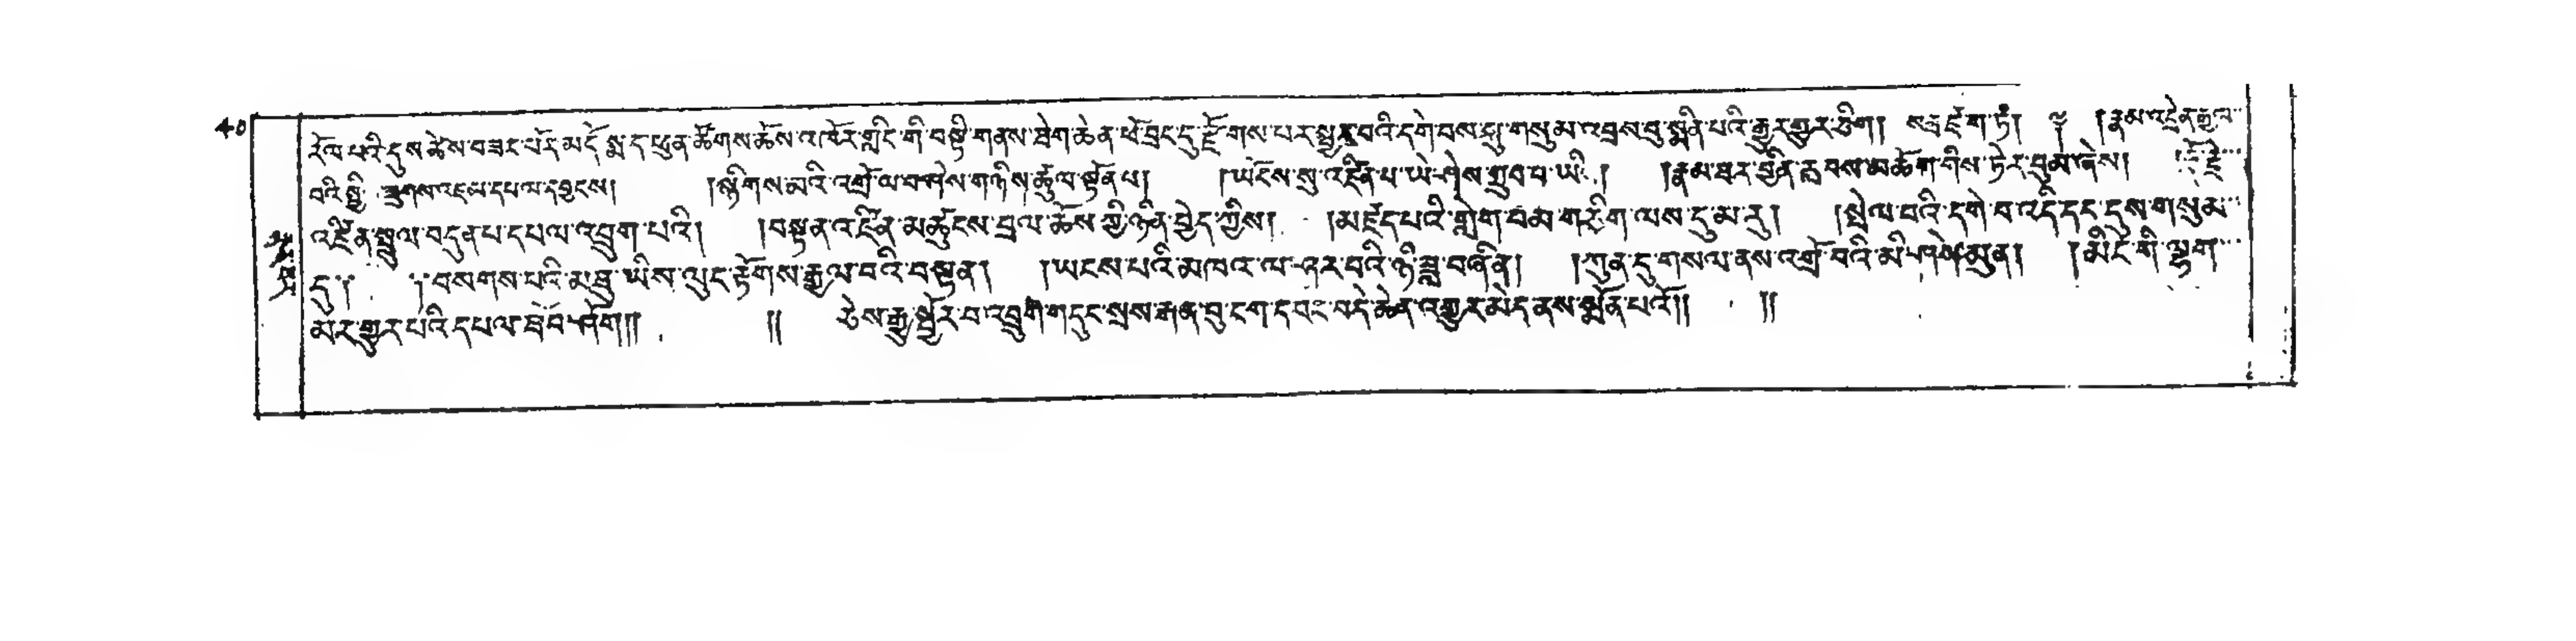 40
རོལ་པའི་དུས་ཚེས་བཟང་པོར་མདོ་སྨད་ཕུན་ཚོགས་ཆོས་འཁོར་གླིང་གི་བསྟི་གནས་ཐེག་ཆེན་ཕོ་བྲང་དུ་རྫོགས་པར་སྦྱར་བའི་དགེ་བས་སྐུ་གསུམ་འབྲས་བུ་སྨིན་པའི་རྒྱུར་གྱུར་ཅིག། སརྦ་ཛ་ག་ཏཾ། ། །རྣམ་འདྲེན་རྒྱལ་
བའི་སྤྱི་གཟུགས་འཇམ་དཔལ་དབྱངས། །སྙིགས་མའི་འགྲོ་ལ་བཤེས་གཉིས་ཚུལ་སྟོན་པ། །ཡོངས་སུ་འཛིན་པ་ཡེ་ཤེས་གྲུབ་པ་ཡི། །རྣམ་ཐར་བྱིན་རླབས་མཆོག་གིས་ཏེར་བུམ་ཞེས། །རྡོ་རྗེ་
འཛིན་སྤྲུལ་བདུན་པ་དཔལ་འབྲུག་པའི། །བསྟན་འཛིན་མཚུངས་བྲལ་ཆོས་ཀྱི་ཉིན་བྱེད་ཀྱིས། །མཛད་པའི་གླེག་བམ་གཅིག་ལས་དུ་མ་རུ། །སྤེལ་བའི་དགེ་བ་འདི་དང་དུས་གསུམ་
དུ། །བསགས་པའི་མཐུ་ཡིས་ལུང་རྟོགས་རྒྱལ་བའི་བསྟན། །ཡངས་པའི་མཁའ་ལ་ཤར་བའི་ཉི་ཟླ་བཞིན། །ཀུན་ཏུ་གསལ་ནས་འགྲོ་བའི་མི་ཤེས་མུན། །མིང་གི་ལྷག་
མར་གྱུར་པའི་དཔལ་ཐོབ་ཤོག།། །། ཅེས་རྒྱ་སྦྱོར་བ་འབྲུག་གདུང་སྲས་རྒན་བུ་ངག་དབང་བདེ་ཆེན་འགྱུར་མེད་ནས་སྨོན་པའོ།། །།